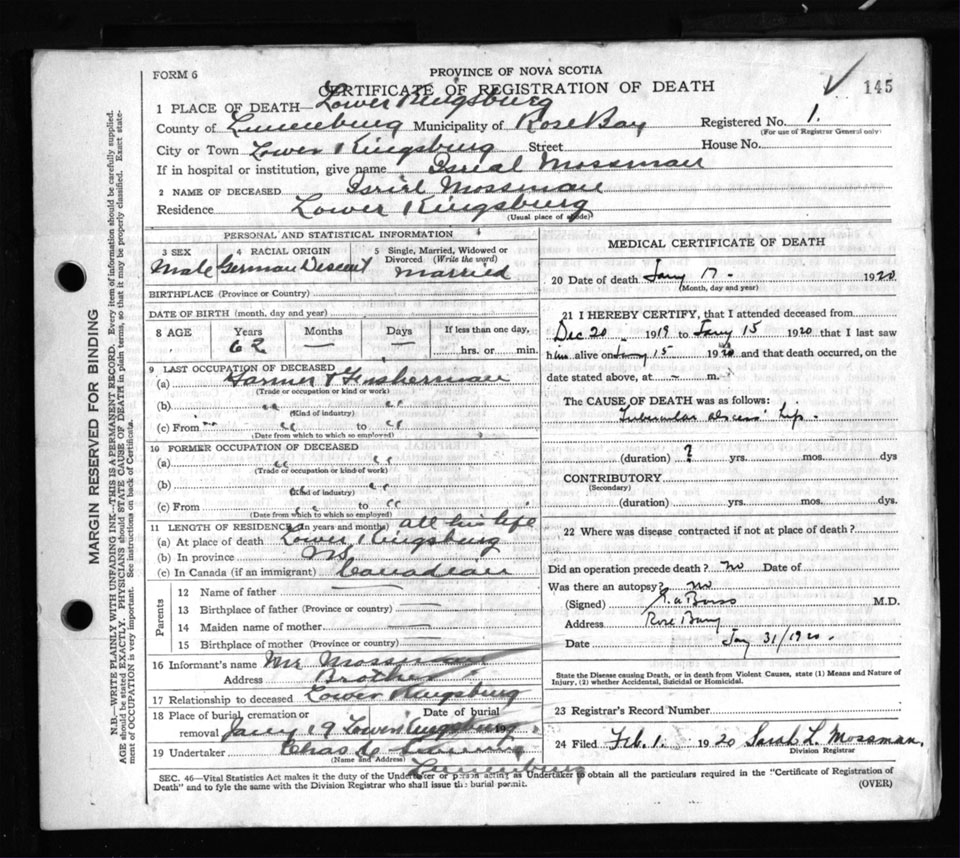 FORM 6
PROVINCE OF NOVA SCOTIA
CERTIFICATE OF REGISTRATION OF DEATH
145
1 PLACE OF DEATH— Lower Kingsburg
County of Lunenburg Municipality of Rose Bay Registered No. 1.
(For use of Registrar General only)
City or Town Lower Kingsburg Street House No.
If in hospital or institution, give name Isrial Mossman
2 NAME OF DECEASED Isriel Mossman
Residence Lower Kingsburg
(Usual place of abode)
PERSONAL AND STATISTICAL INFORMATION
3 SEX 4 RACIAL ORIGIN 5 Single, Married, Widowed or Divorced (Write the word)
Male German Descent Married
BIRTHPLACE (Province or Country)
DATE OF BIRTH (month, day and year)
8 AGE Years Months Days If less than one day,
62 — — hrs. or min.
9 LAST OCCUPATION OF DECEASED
(a) Farmer & Fisherman
(Trade or occupation or kind of work)
(b) " "
(Kind of industry)
(c) From " to "
(Date from which to which so employed)
10 FORMER OCCUPATION OF DECEASED
(a) " "
(Trade or occupation or kind of work)
(b) "
(Kind of industry)
(c) From " to "
(Date from which to which so employed)
11 LENGTH OF RESIDENCE (in years and months) all his life
(a) At place of death Lower Kingsburg
(b) In province NS
(c) In Canada (if an immigrant) Canadian
Parents
12 Name of father —
13 Birthplace of father (Province or country) —
14 Maiden name of mother —
15 Birthplace of mother (Province or country) —
16 Informant's name Mossman
Address Brother
17 Relationship to deceased Lower Kingsburg
18 Place of burial, cremation or removal Date of burial
Jany 19 Lower Kingsburg 19
19 Undertaker Chas
(Name and Address)
Lunenburg
MEDICAL CERTIFICATE OF DEATH
20 Date of death Jany 17 - 1920
(Month, day and year)
21 I HEREBY CERTIFY, that I attended deceased from
Dec 20 1919 to Jany 15 1920 that I last saw
him alive on Jany 15 1920 and that death occurred, on the
date stated above, at - m.
The CAUSE OF DEATH was as follows:
Tubercular abscess hip.
(duration) ? yrs. mos. dys
CONTRIBUTORY
(Secondary)
(duration) yrs. mos. dys.
22 Where was disease contracted if not at place of death?
Did an operation precede death? no Date of
Was there an autopsy? no
(Signed) M.D.
Address Rose Bay
Date Jany 31/1920.
State the Disease causing Death, or in death from Violent Causes, state (1) Means and Nature of
Injury, (2) whether Accidental, Suicidal or Homicidal.
23 Registrar's Record Number
24 Filed Feb. 1. 1920 Sarah L. Mossman.
Division Registrar
SEC. 46—Vital Statistics Act makes it the duty of the Undertaker or person acting as Undertaker to obtain all the particulars required in the "Certificate of Registration of
Death" and to fyle the same with the Division Registrar who shall issue the burial permit.
(OVER)
MARGIN RESERVED FOR BINDING
N.B.—WRITE PLAINLY WITH UNFADING INK—THIS IS A PERMANENT RECORD. Every item of information should be carefully supplied.
AGE should be stated EXACTLY. PHYSICIANS should STATE CAUSE OF DEATH in plain terms, so that it may be properly classified. Exact statement
of OCCUPATION is very important. See instructions on back of Certificate.